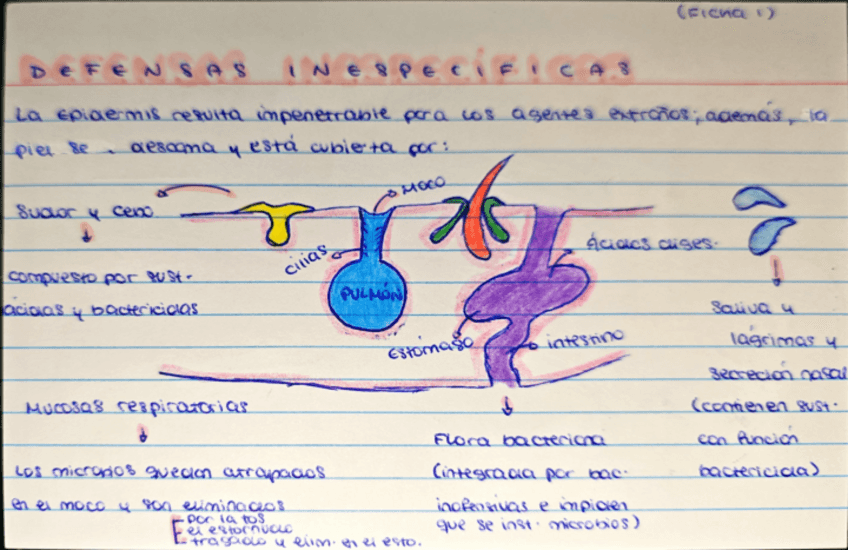 (Ficha 1)
DEFENSAS INESPECÍFICAS
La epidermis resulta impenetrable para los agentes extraños; además, la
piel se descama y está cubierta por:
Sudor y cebo
compuesto por sust.
ácidas y bactericidas
Moco
cilias
PULMÓN
Ácidos diges.
Estómago
intestino
Saliva y
lágrimas y
secreción nasal
(contienen sust.
con función
bactericida)
Mucosas respiratorias
Los microbios quedan atrapados
en el moco y son eliminados
por la tos
el estornudo
tragado y elim. en el esto.
Flora bacteriana
(integrada por bac.
inofensivas e impiden
que se inst. microbios)